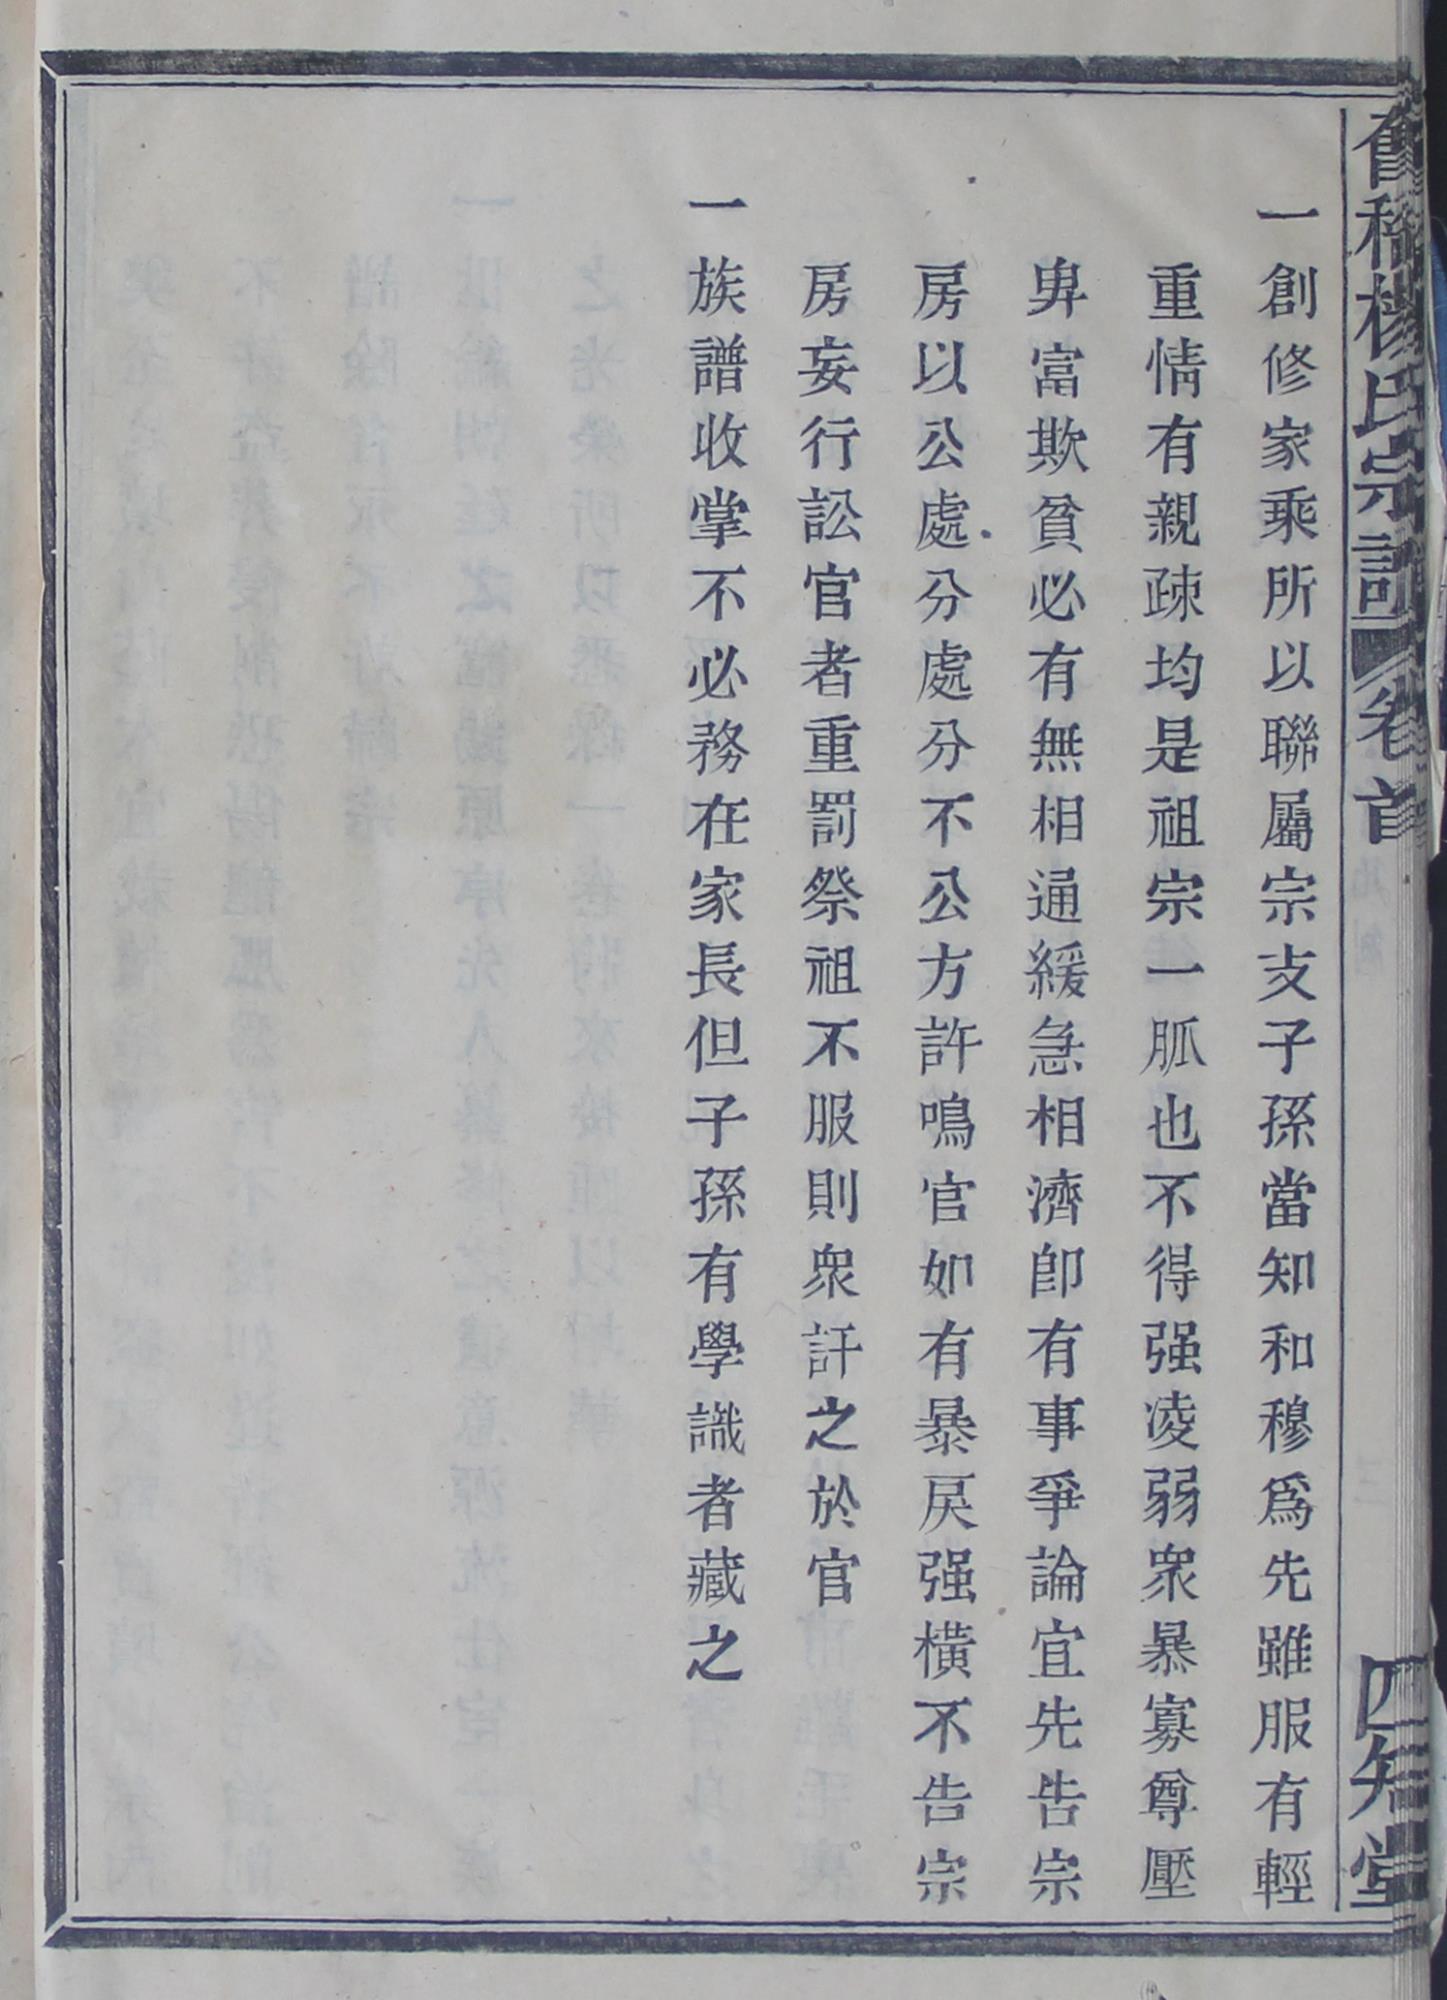 一創修家乘所以聯屬宗支子孫當知和穆爲先雖服有輕
重情有親疎均是祖宗一脈也不得强凌弱衆暴寡尊壓
卑富欺貧必有無相通緩急相濟卽有事爭論宜先告宗
房以公處分處分不公方許鳴官如有暴戾强橫不告宗
房妄行訟官者重罰祭祖不服則衆訐之於官
一族譜收掌不必務在家長但子孫有學識者藏之
楊氏宗譜
卷首
四知堂